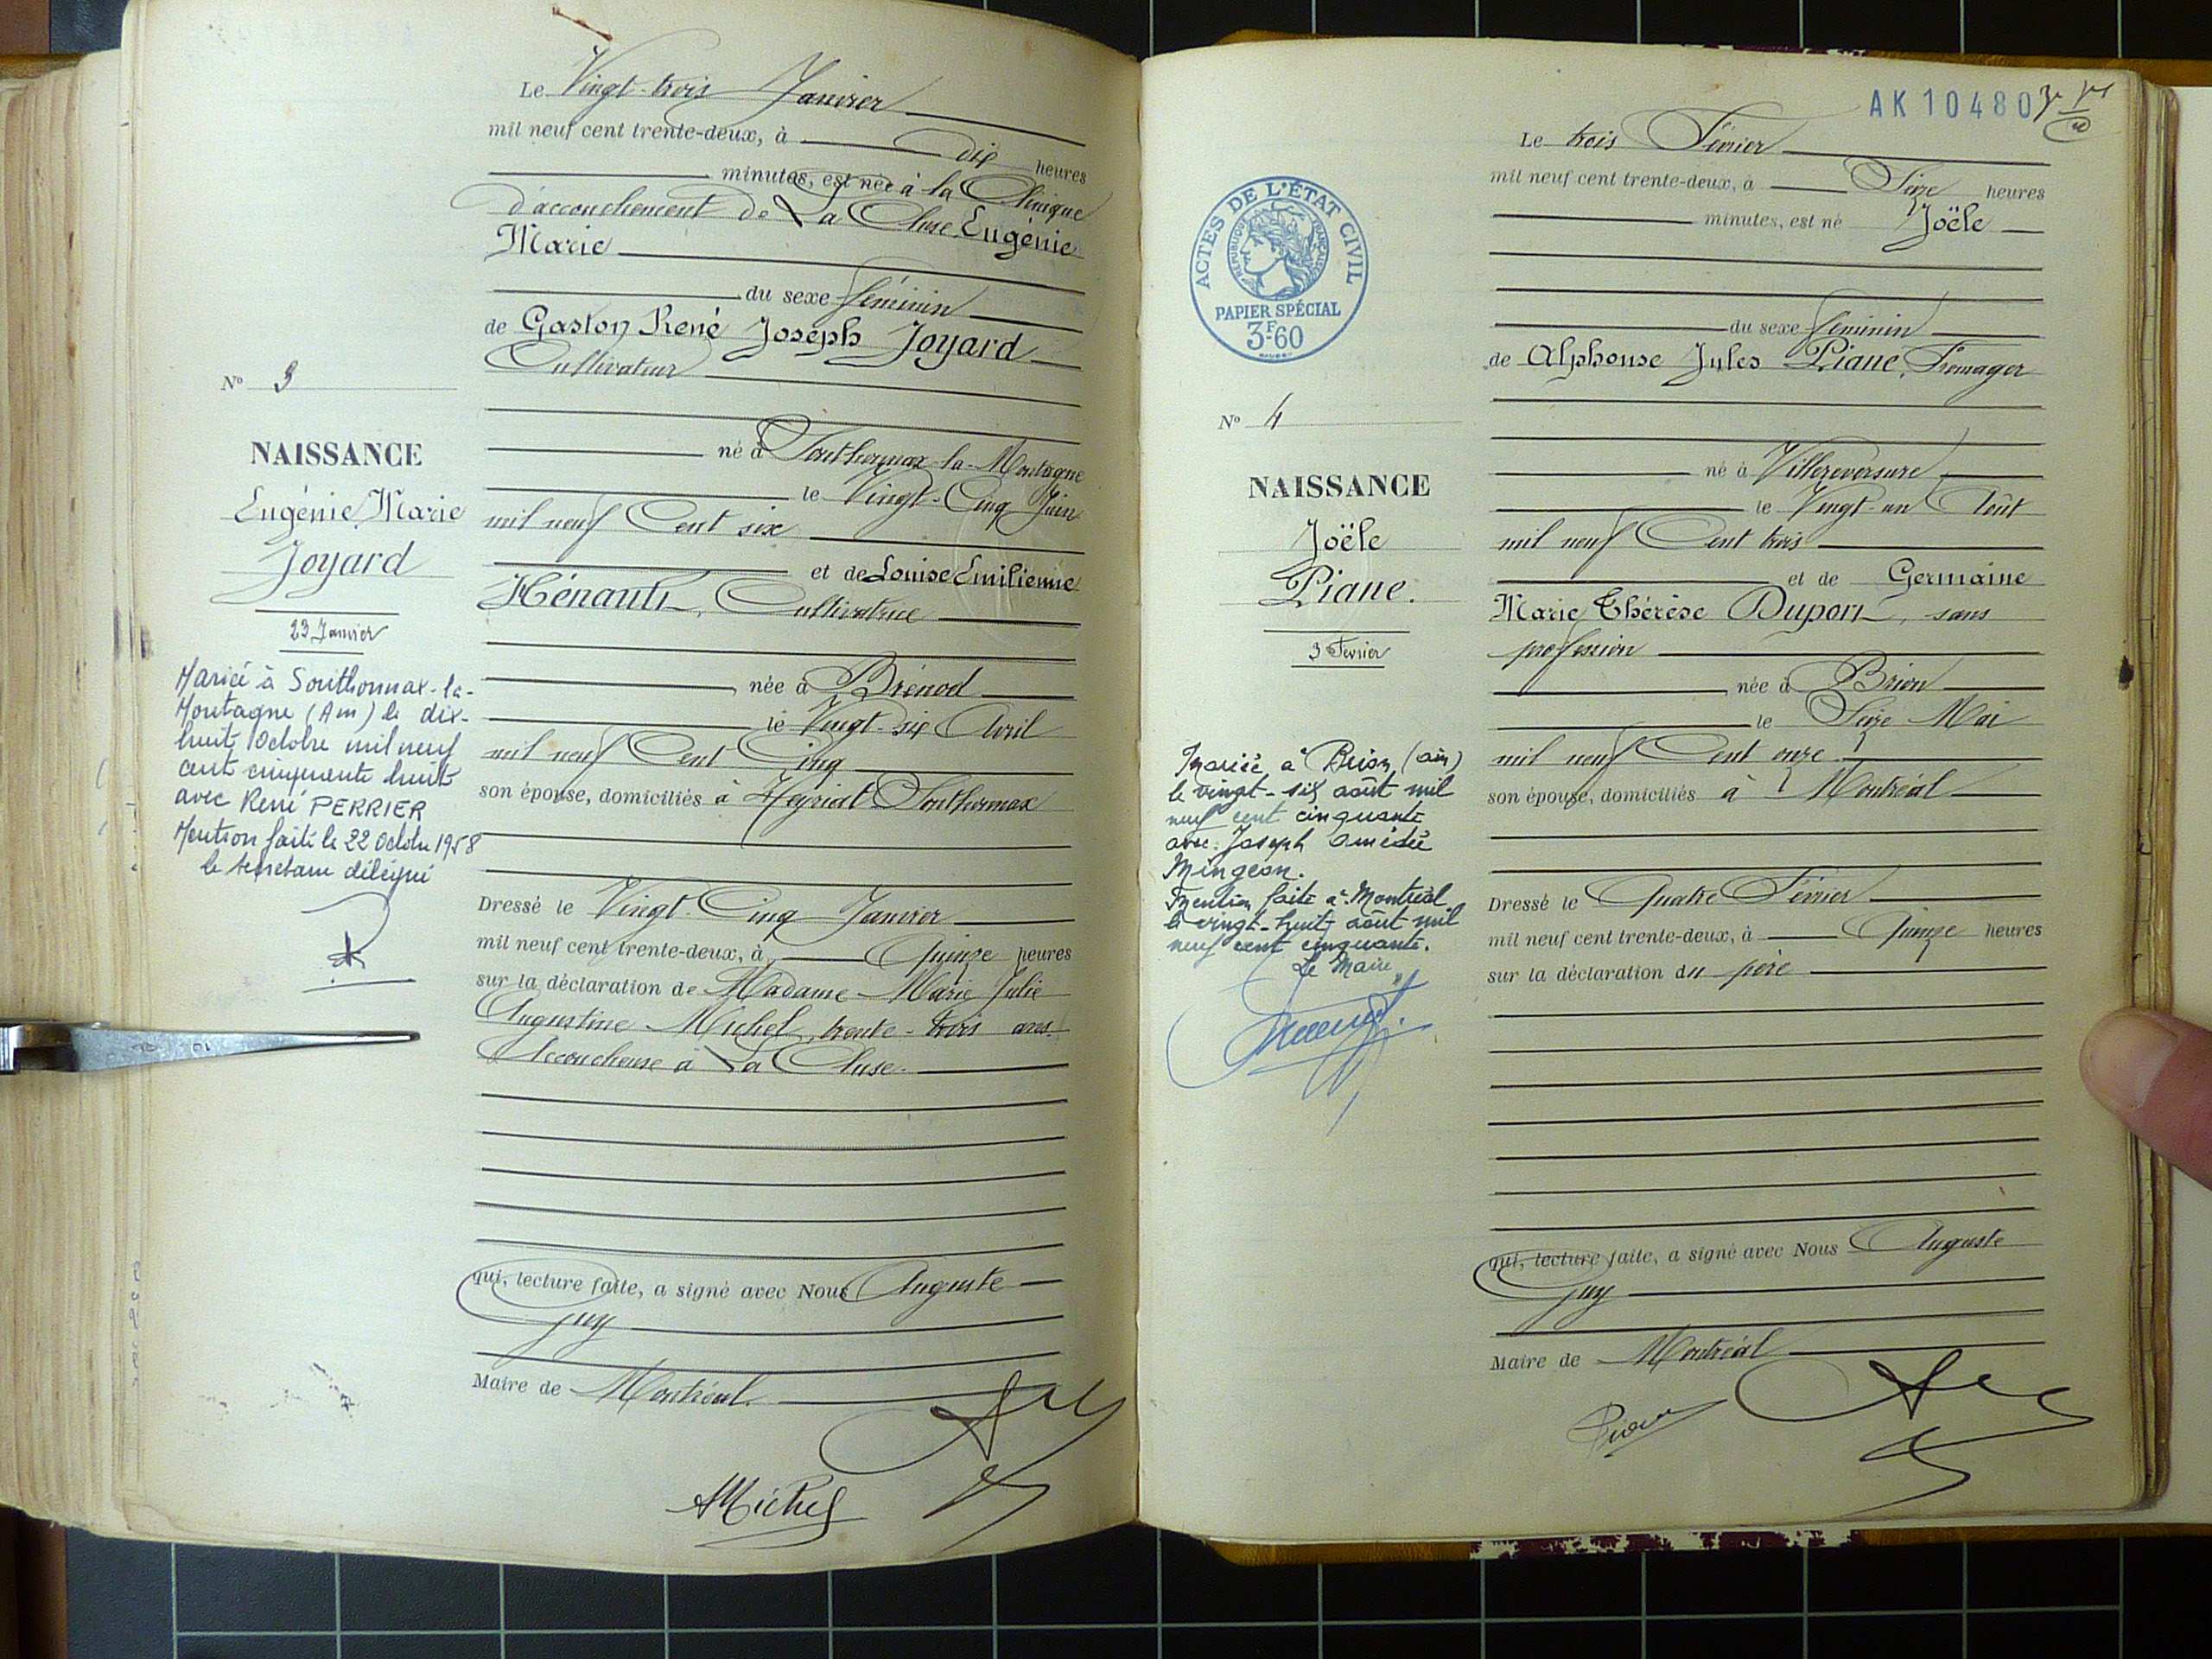 Le Vingt-trois Janvier
mil neuf cent trente-deux, à dix heures
minutes, est née à la Clinique
d'accouchement de La Cluse Eugénie
Marie
du sexe féminin
de Gaston René Joseph Joyard
Cultivateur
né à Sonthonnax-la-Montagne
le Vingt-Cinq Juin
mil neuf Cent six
et de Louise Emilienne
Hénault, Cultivatrice
née à Brénod
le Vingt-six Avril
mil neuf Cent Cinq
son épouse, domiciliés à Heyriat Sonthonnax
Dressé le Vingt-Cinq Janvier
mil neuf cent trente-deux, à Quinze heures
sur la déclaration de Madame Marie Julie
Augustine Michel, trente-trois ans
Accoucheuse à La Cluse.
qui, lecture faite, a signé avec Nous Auguste
Guy
Maire de Montréal.
AMichel
No 3
NAISSANCE
Eugénie Marie
Joyard
23 Janvier
Mariée à Sonthonnax-la-
Montagne (Ain) le dix-
huit Octobre mil neuf
cent cinquante huit
avec René PERRIER
Mention faite le 22 Octobre 1958
le secrétaire délégué
AK 10480
Le trois Février
mil neuf cent trente-deux, à Seize heures
minutes, est né Joële
du sexe féminin
de Alphonse Jules Piane, Fromager
né à Villereversure
le Vingt-un Août
mil neuf Cent trois
et de Germaine
Marie Thérèse Dupont, sans
profession
née à Brion
le Seize Mai
mil neuf Cent onze
son épouse, domiciliés à Montréal
Dressé le Quatre Février
mil neuf cent trente-deux, à Quinze heures
sur la déclaration du père
qui, lecture faite, a signé avec Nous Auguste
Guy
Maire de Montréal
Piane
ACTES DE L'ÉTAT CIVIL
RÉPUBLIQUE FRANÇAISE
PAPIER SPÉCIAL
3F60
No 4
NAISSANCE
Joële
Piane.
3 Février
Mariée à Brion (ain)
le vingt-six août mil
neuf cent cinquante
avec Joseph Amédée
Mingeon.
Mention faite à Montréal
le vingt-huit août mil
neuf cent cinquante.
Le Maire